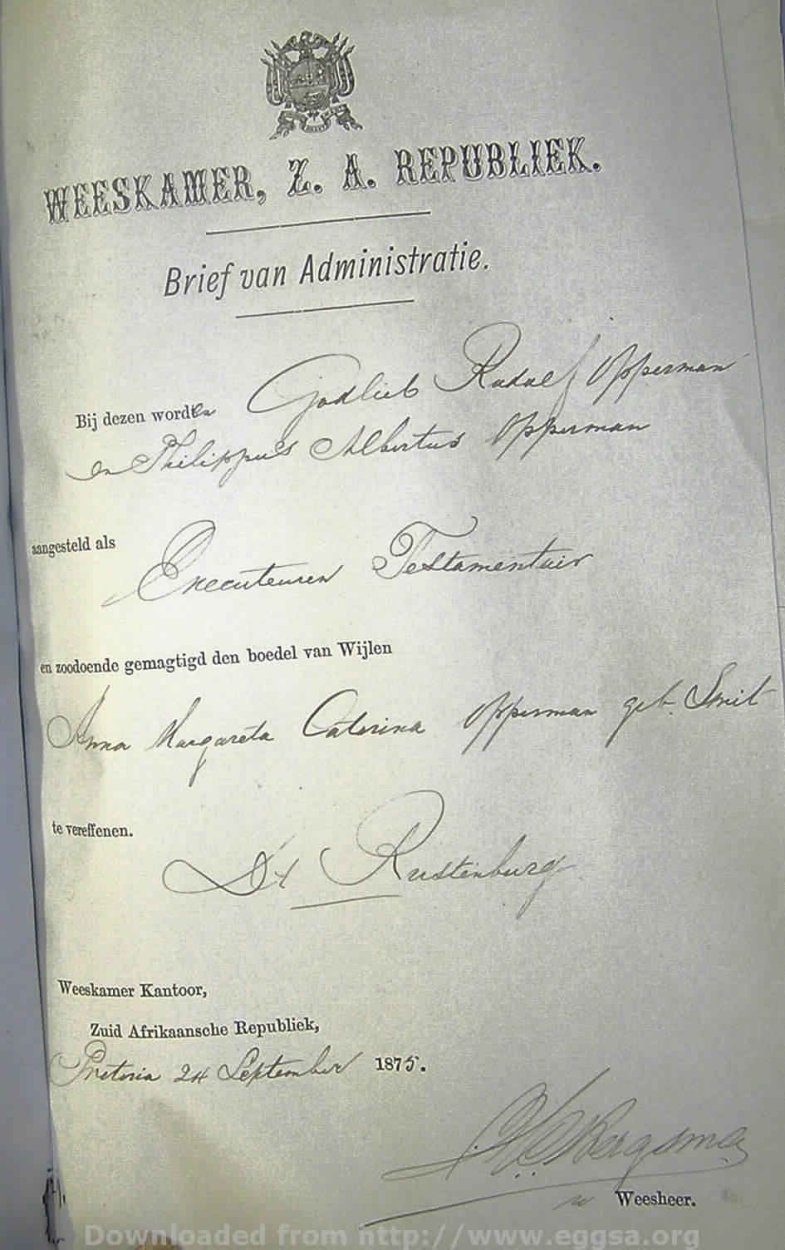 WEESKAMER, Z. A. REPUBLIEK.
Brief van Administratie.
Bij dezen worden Godlieb Rudolf Opperman
en Philippus Albertus Opperman
aangesteld als
Executeuren Testamentair
en zoodoende gemagtigd den boedel van Wijlen
Anna Margareta Caterina Opperman geb. Smit
te vereffenen.
Dt Rustenburg
Weeskamer Kantoor,
Zuid Afrikaansche Republiek,
Pretoria 24 September 1875.
Bergsma
Weesheer.
Downloaded from http://www.eggsa.org